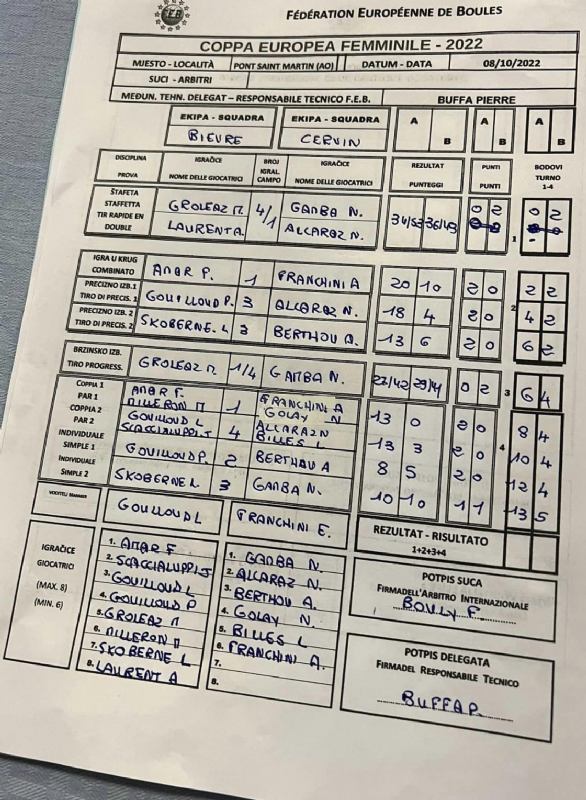 FEB
FÉDÉRATION EUROPÉENNE DE BOULES
COPPA EUROPEA FEMMINILE - 2022
MJESTO - LOCALITÀ PONT SAINT MARTIN (AO) DATUM - DATA 08/10/2022
SUCI - ARBITRI
MEĐUN. TEHN. DELEGAT – RESPONSABILE TECNICO F.E.B. BUFFA PIERRE
EKIPA - SQUADRA EKIPA - SQUADRA A B A B A B
BIEVRE CERVIN
DISCIPLINA PROVA IGRAČICE NOME DELLE GIOCATRICI BROJ IGRAL. CAMPO IGRAČICE NOME DELLE GIOCATRICI REZULTAT PUNTEGGI PUNTI PUNTI BODOVI TURNO 1-4
ŠTAFETA STAFFETTA TIR RAPIDE EN DOUBLE
GROLEAZ M. 4/1 GAMBA N. 0 2 0 2
LAURENT A. ALCARAZ N. 1
IGRA U KRUG COMBINATO AMAR F. 1 FRANCHINI A 20 10 2 0 2 2
PRECIZNO IZB.1 TIRO DI PRECIS. 1 GOUILLOUD P. 3 ALCARAZ N. 18 4 2 0 2 4 2
PRECIZNO IZB. 2 TIRO DI PRECIS. 2 SKOBERNE. L 3 BERTHOU A. 13 6 2 0 6 2
BRZINSKO IZB. TIRO PROGRESS. GROLEAZ M. 1/4 GAMBA N. 0 2 3 6 4
COPPIA 1 PAR 1 AMAR F. MILLERON M 1 FRANCHINI A GOLAY N 13 0 2 0 8 4
COPPIA 2 PAR 2 GOUILLOUD L SCACCIALUPPI.J 4 ALCARAZ N BILLES L 13 3 2 0 4 10 4
INDIVIDUALE SIMPLE 1 GOUILLOUD P. 2 BERTHOU A 8 5 2 0 12 4
INDIVIDUALE SIMPLE 2 SKOBERNE L 3 GAMBA N. 10 10 1 1 13 5
GOUILLOUD L FRANCHINI E. REZULTAT - RISULTATO
1+2+3+4
IGRAČICE
GIOCATRICI
(MAX. 8)
(MIN. 6)
1. AMAR F
2. SCACCIALUPPI.J
3. GOUILLOUD L
4. GOUILLOUD P
5. GROLEAZ M
6. MILLERON M
7. SKOBERNE L
8. LAURENT A
1. GAMBA N.
2. ALCARAZ N.
3. BERTHOU A.
4. GOLAY N
5. BILLES L
6. FRANCHINI A.
7.
8.
POTPIS SUCA
FIRMADELL'ARBITRO INTERNAZIONALE
BOULY F.
POTPIS DELEGATA
FIRMADEL RESPONSABILE TECNICO
BUFFA P